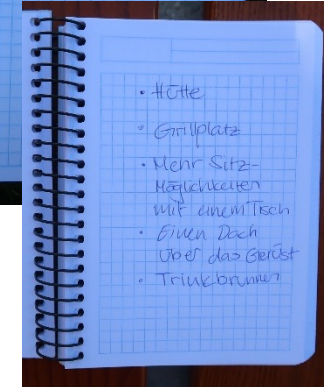 • Hütte
• Grillplatz
• Mehr Sitz-
möglichkeiten
mit einem Tisch
• Einen Dach
über das Gerüst
• Trinkbrunnen